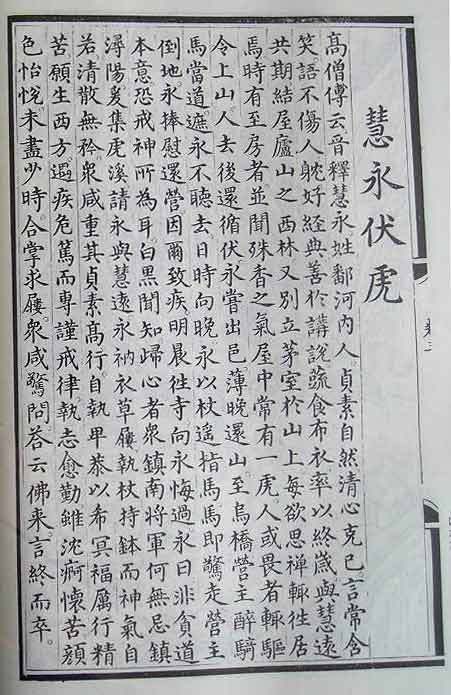 慧永伏虎
高僧傳云晉釋慧永姓鄱河內人貞素自然清心克己言常含
笑語不傷人躭好經典善於講說蔬食布衣率以終歲與慧遠
共期結屋廬山之西林又別立茅室於山上每欲思禪輒往居
焉時有至房者並聞殊香之氣屋中常有一虎人或畏者輒驅
令上山人去後還循伏永嘗出邑薄晚還山至烏橋營主醉騎
馬當道遮永不聽去日時向晚永以杖遙指馬馬即驚走營主
倒地永捧慰還營因爾致疾明晨往寺向永悔過永曰非貧道
本意恐戒神所為耳白黑聞知歸心者眾鎮南將軍何無忌鎮
潯陽爰集虎溪請永與慧遠永衲衣草屨執杖持鉢而神氣自
若清散無衿眾咸重其貞素高行自執卑恭以希冥福厲行精
苦願生西方遇疾危篤而專謹戒律執志愈勤雖沈痾懷苦顏
色怡悅未盡少時合掌求屨眾咸驚問答云佛來言終而卒。